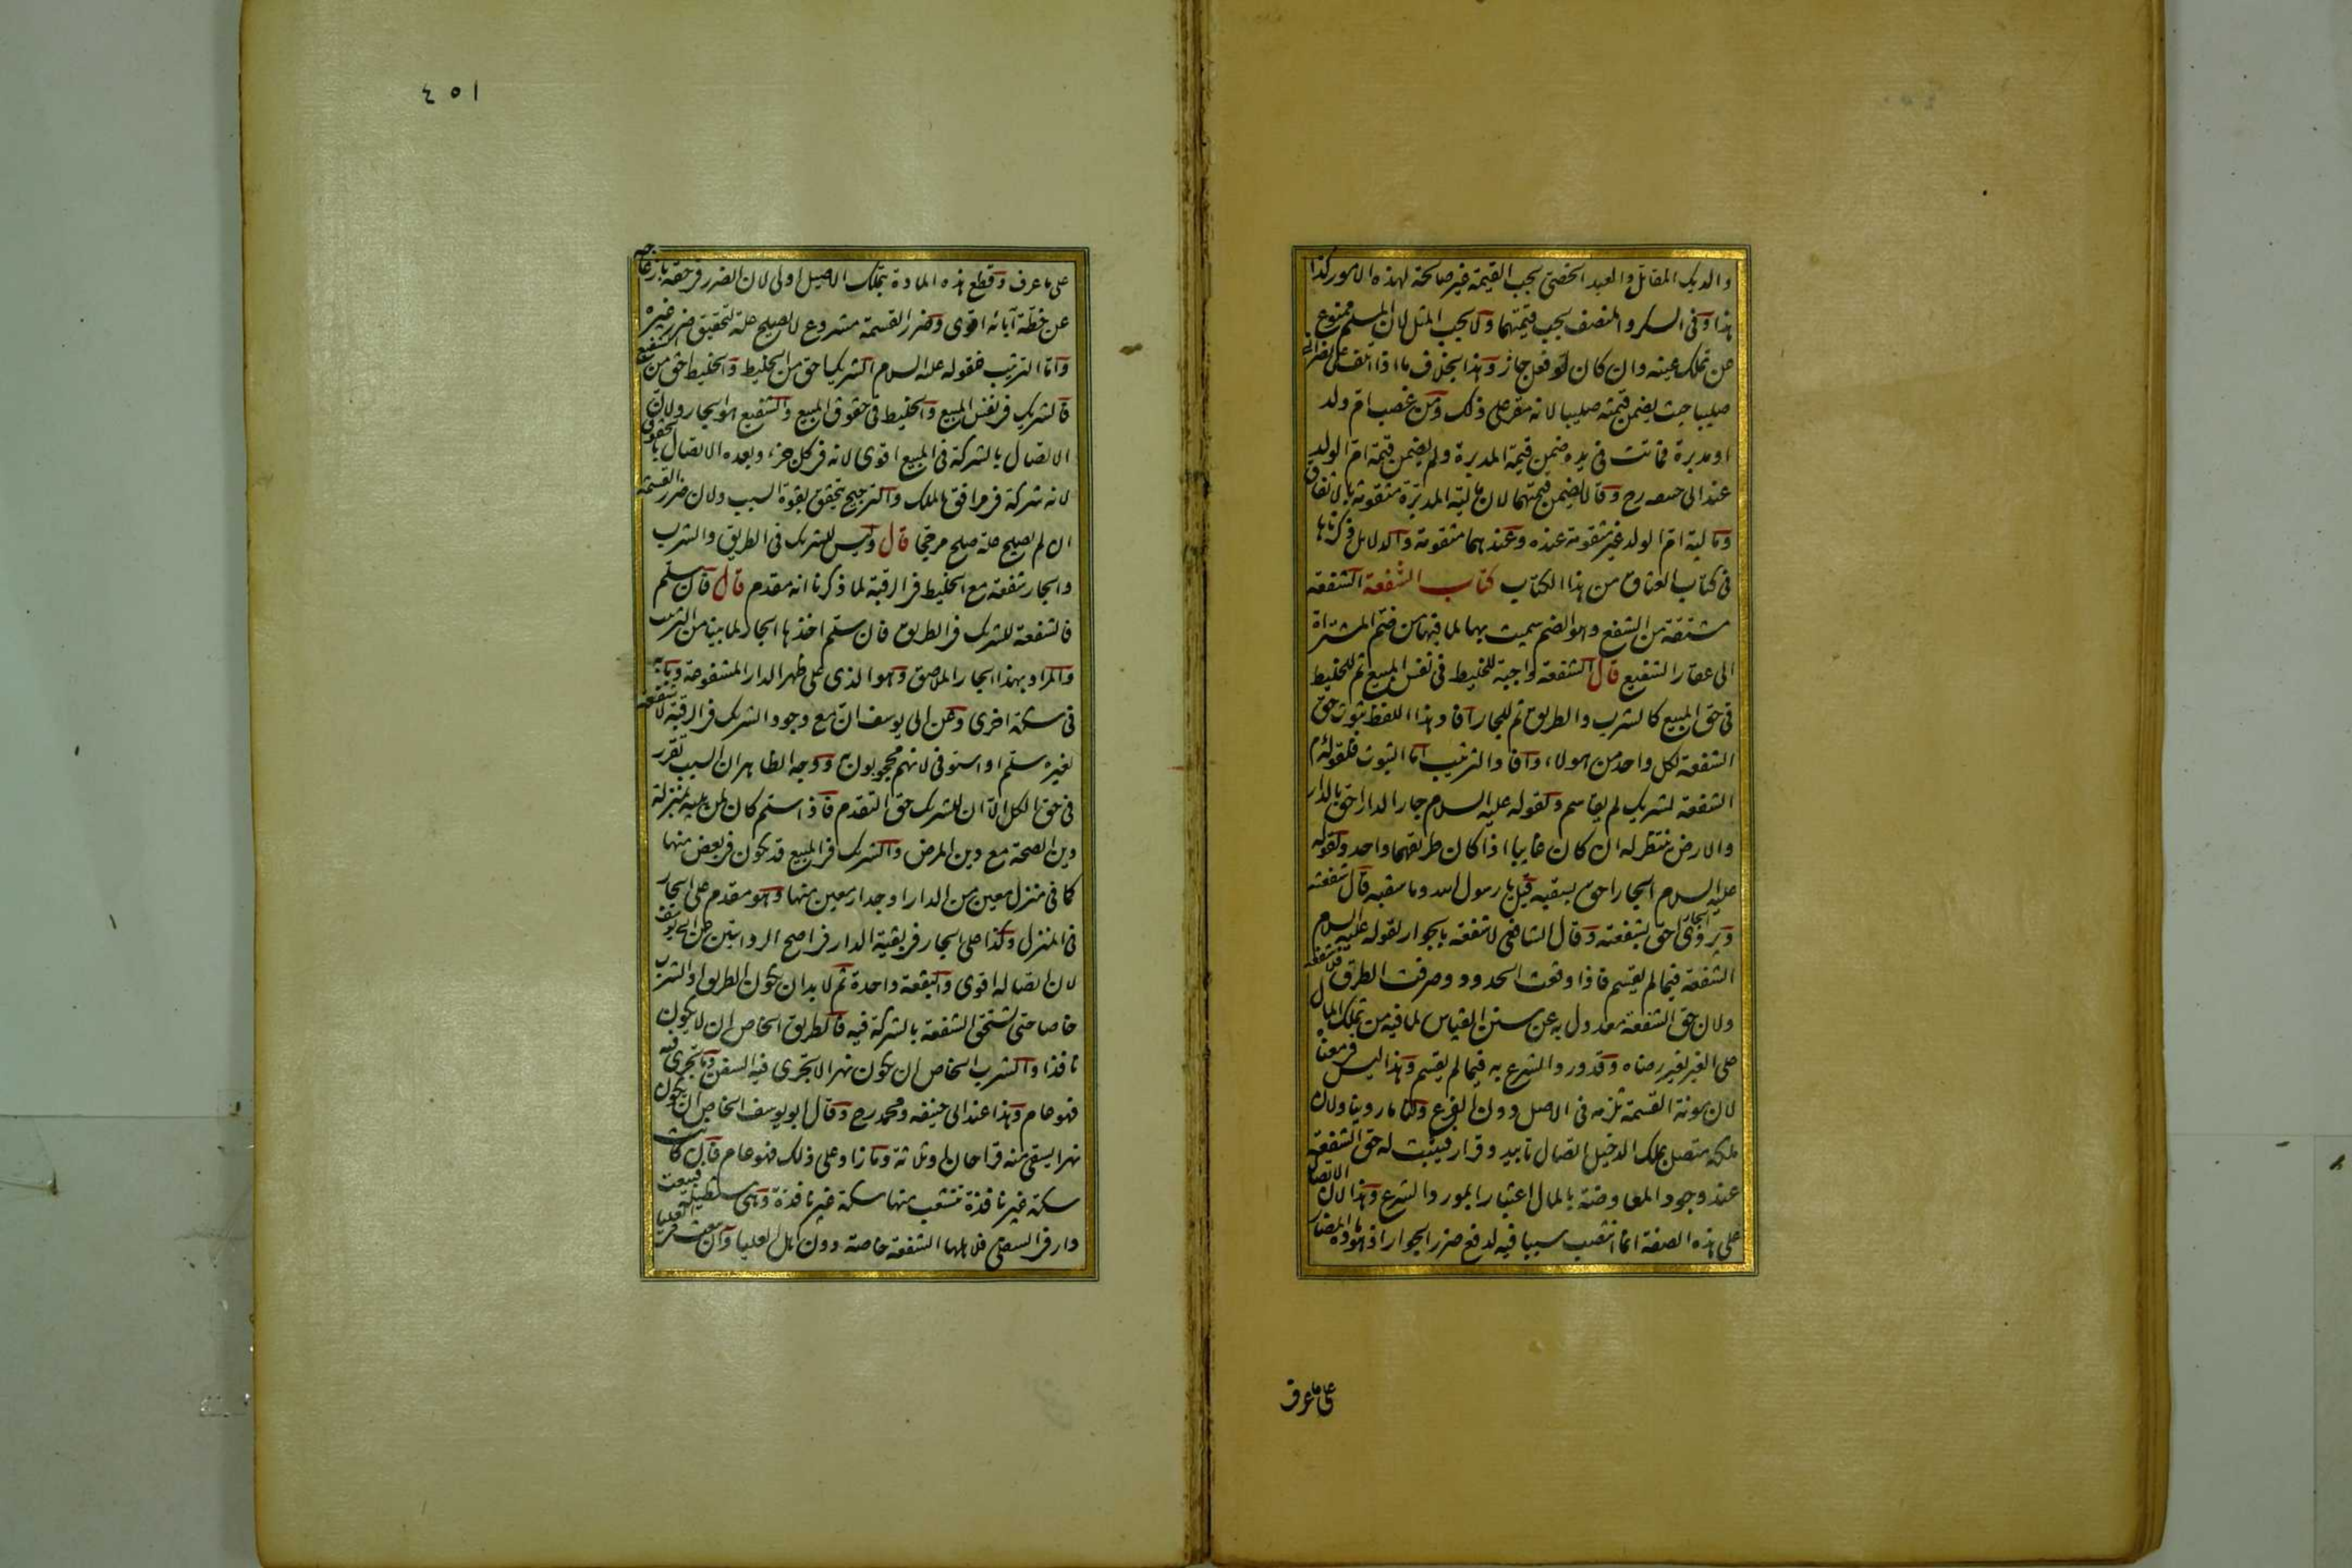 والديك المقاتل والعبد الخصي يجب القيمة غير صالحة لهذه الامور كذا
هذا وفي السكر والمنصف يجب قيمتهما ولا يجب المثل لان المسلم ممنوع
عن تملك عينه وان كان لو فعل جاز وهذا بخلاف ما اذا اتلف على نصراني
صليبا حيث يضمن قيمته صليبا لانه مقر على ذلك ومن غصب ام ولد
او مدبرة فماتت في يده ضمن قيمة المدبرة ولم يضمن قيمة ام الولد
عند ابي حنيفه رح وقالا يضمن قيمتهما لان مالية المدبرة متقومة بالاتفاق
ومالية ام الولد غير متقومة عنده وعندهما متقومة والدلائل ذكرناها
في كتاب العتاق من هذا الكتاب كتاب الشفعة الشفعة
مشتقة من الشفع وهو الضم سميت بها لما فيها من ضم المشتراة
الى عقار الشفيع قال الشفعة واجبة للخليط في نفس المبيع ثم للخليط
في حق المبيع كالشرب والطريق ثم للجار افاد هذا اللفظ ثبوت حق
الشفعة لكل واحد من هولاء وافاد الترتيب اما الثبوت فلقوله م
الشفعة لشريك لم يقاسم ولقوله عليه السلام جار الدار احق بالدار
والارض ينتظر له ان كان غايبا اذا كان طريقهما واحد ولقوله
عليه السلام الجار احق بسقبه قيل يا رسول الله وما سقبه قال شفعته
ويروى الجار احق بشفعته وقال الشافعي لا شفعة بالجوار لقوله عليه السلام
الشفعة فيما لم يقسم فاذا وقعت الحدود وصرفت الطرق فلا شفعة
ولان حق الشفعة معدول به عن سنن القياس لما فيه من تملك المال
على الغير بغير رضاه وقد ورد الشرع به فيما لم يقسم وهذا ليس في معناه
لان مونة القسمة تلزمه في الاصل دون الفرع ولنا ما روينا ولان
ملكه متصل بملك الدخيل اتصال تابيد وقرار فيثبت له حق الشفعة
عند وجود المعاوضة بالمال اعتبارا بمورد الشرع وهذا لان الاتصال
على هذه الصفة انما انتصب سببا فيه لدفع ضرر الجوار اذ هو مادة المضار
على ما عرف
٤٥١
على ما عرف وقطع هذه المادة بتملك الاصيل اولى لان الضرر في حقه بازعاجه
عن خطة آبائه اقوى وضرر القسمة مشروع لا يصلح علة لتحقيق ضرر غيره
واما الترتيب فلقوله عليه السلام الشريك احق من الخليط والخليط احق من الشفيع
فالشريك في نفس المبيع والخليط في حقوق المبيع والشفيع هو الجار ولان
الاتصال بالشركة في المبيع اقوى لانه في كل جزء وبعده الاتصال بالحقوق
لانه شركة في مرافق الملك والترجيح يتحقق بقوة السبب ولان ضرر القسمة
ان لم يصلح علة صلح مرجحا قال وليس للشريك في الطريق والشرب
والجار شفعة مع الخليط في الرقبة لما ذكرنا انه مقدم قال فان سلم
فالشفعة للشريك في الطريق فان سلم اخذها الجار لما بينا من الترتيب
والمراد بهذا الجار الملاصق وهو الذي على ظهر الدار المشفوعة وبابه
في سكة اخرى وعن ابي يوسف ان مع وجود الشريك في الرقبة لا شفعة
لغيره سلم او استوفى لانهم محجوبون به ووجه الظاهر ان السبب تقرر
في حق الكل الا ان للشريك حق التقدم فاذا سلم كان لمن يليه بمنزلة
دين الصحة مع دين المرض والشريك في المبيع قد يكون في بعض منها
كما في منزل معين من الدار او جدار معين منها وهو مقدم على الجار
في المنزل وكذا على الجار في بقية الدار في اصح الروايتين عن ابي يوسف
لان اتصاله اقوى والبقعة واحدة ثم لا بد ان يكون الطريق او الشرب
خاصا حتى تستحق الشفعة بالشركة فيه فالطريق الخاص ان لا يكون
نافذا والشرب الخاص ان يكون نهرا لا تجري فيه السفن وما تجري فيه
فهو عام وهذا عند ابي حنيفه ومحمد رح وقال ابو يوسف الخاص ان يكون
نهرا يسقى منه قراحان او ثلاثة وما زاد على ذلك فهو عام فان كانت
سكة غير نافذة تتشعب منها سكة غير نافذة وهي مستطيلة فبيعت
دار في السفلى فلاهلها الشفعة خاصة دون اهل العليا وان بيعت في العليا